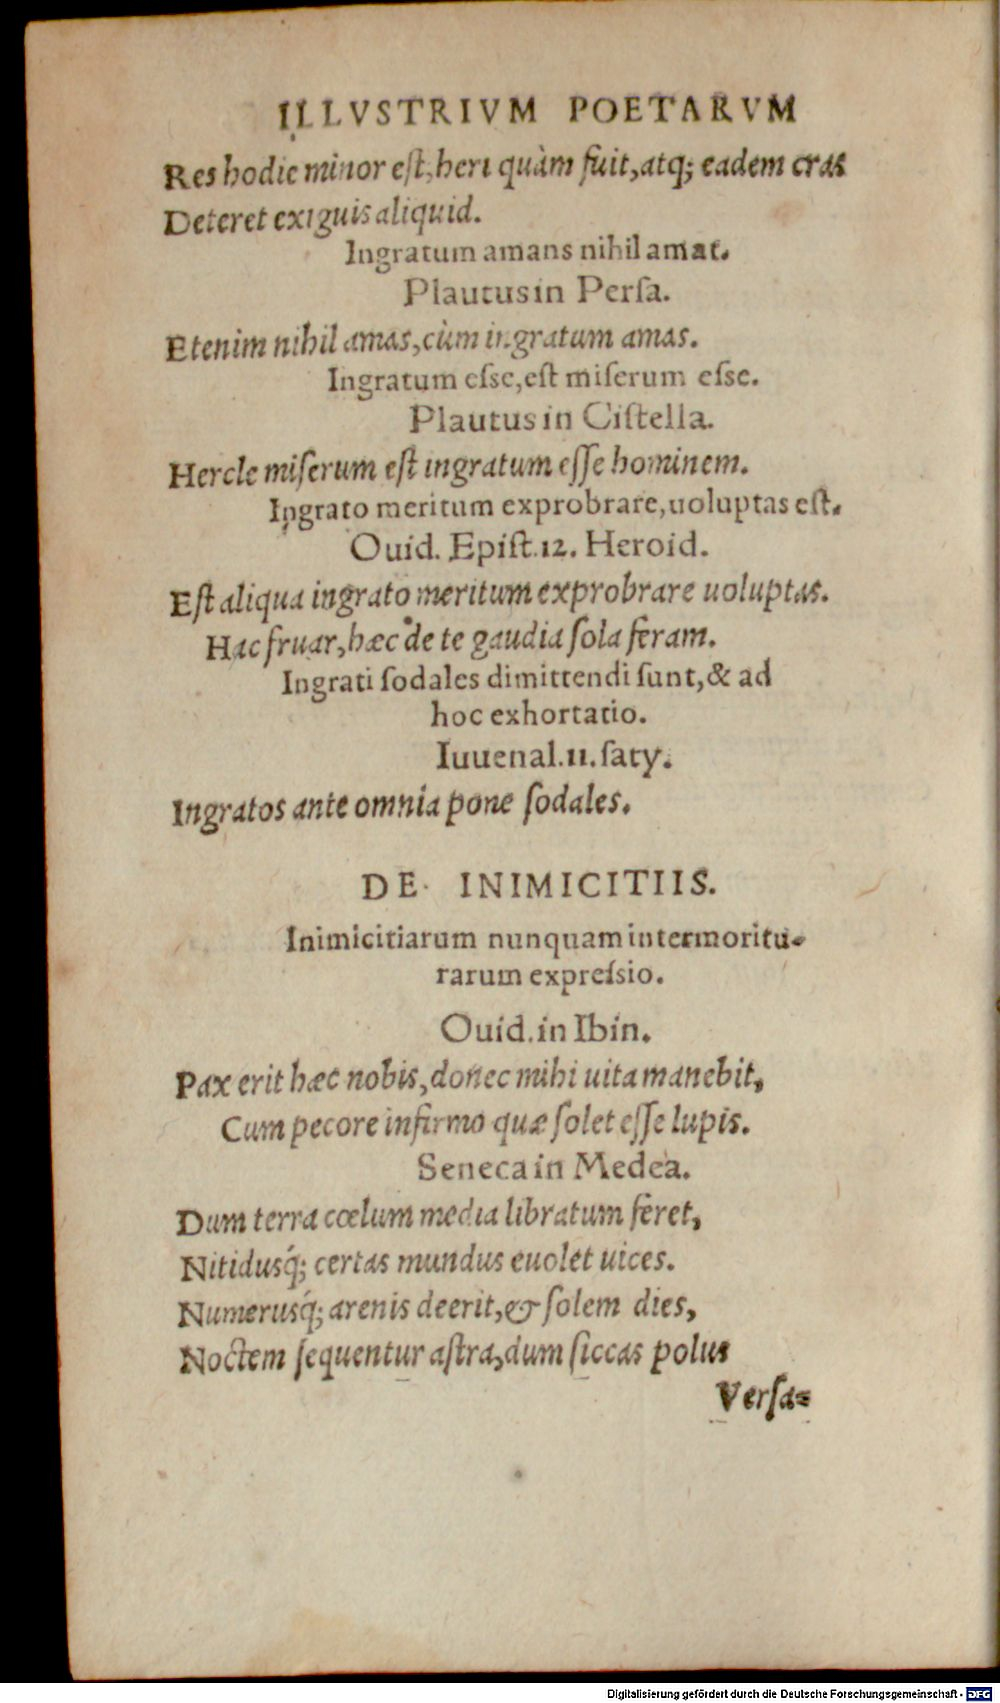 ILLVSTRIVM POETARVM
Res hodie minor eſt, heri quàm fuit, atq; eadem cras
Deteret exiguis aliquid.
Ingratum amans nihil amat.
Plautus in Perſa.
Etenim nihil amas, cùm ingratum amas.
Ingratum eſse, eſt miſerum eſse.
Plautus in Ciſtella.
Hercle miſerum eſt ingratum eſſe hominem.
Ingrato meritum exprobrare, uoluptas eſt.
Ouid. Epiſt. 12. Heroid.
Eſt aliqua ingrato meritum exprobrare uoluptas.
Hac fruar, hæc de te gaudia ſola feram.
Ingrati ſodales dimittendi ſunt, & ad
hoc exhortatio.
Iuuenal. 11. ſaty.
Ingratos ante omnia pone ſodales.
DE INIMICITIIS.
Inimicitiarum nunquam intermoritu-
rarum expreſsio.
Ouid. in Ibin.
Pax erit hæc nobis, donec mihi uita manebit,
Cum pecore infirmo quæ ſolet eſſe lupis.
Seneca in Medea.
Dum terra cœlum media libratum feret,
Nitidusq́; certas mundus euolet uices.
Numerusq́; arenis deerit, & ſolem dies,
Noctem ſequentur aſtra, dum ſiccas polus
Verſa=
Digitalisierung gefördert durch die Deutsche Forschungsgemeinschaft - DFG